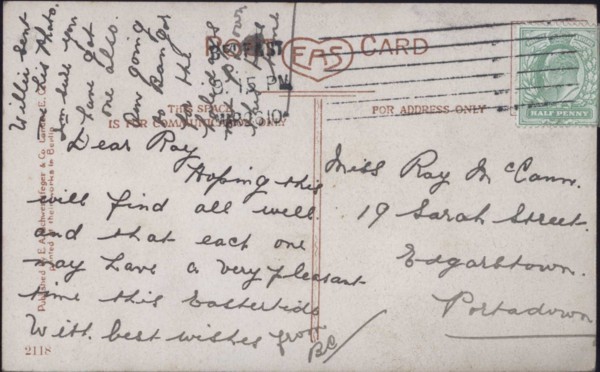 Willie sent
me his photo.
I'm sure you
have got
one also.
Am going
to Bangor
for the
holidays
own
POST CARD
EAS
BELFAST
5 15 PM
10
HALF PENNY
THE SPACE
IS FOR COMMUNICATION ONLY
FOR ADDRESS ONLY
Dear Ray
Hoping this
will find all well
and that each one
may have a very pleasant
time this Eastertide
With best wishes from
BC
Miss Ray McCann.
19 Sarah Street.
Edgarstown.
Portadown
Published by E. A. Schwerdtfeger & Co. London E.C.
Printed at their works in Berlin
2118